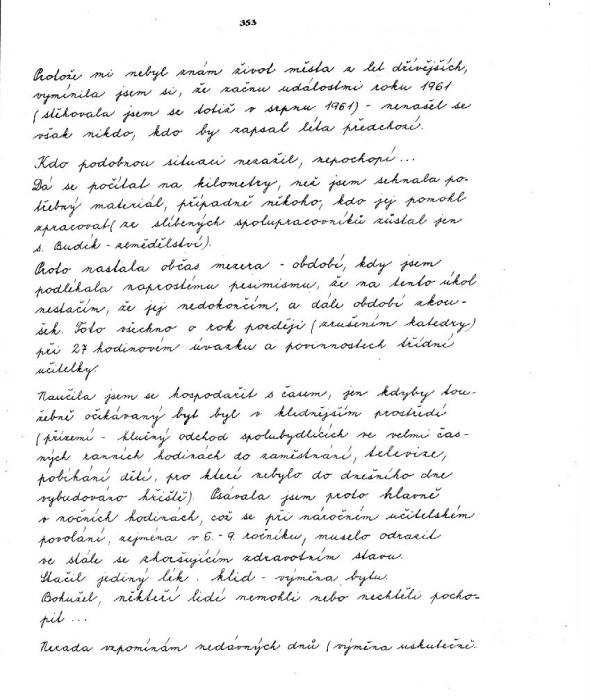 353
Protože mi nebyl znám život města z let dřívějších,
vymínila jsem si, že začnu událostmi roku 1961
(stěhovala jsem se totiž v srpnu 1961) - nenašel se
však nikdo, kdo by zapsal léta předchozí.
Kdo podobnou situaci nezažil, nepochopí...
Dá se počítat na kilometry, než jsem sehnala po-
třebný materiál, případně někoho, kdo jej pomohl
zpracovat (ze slíbených spolupracovníků zůstal jen
s. Budík - zemědělství).
Proto nastala občas mezera - období, kdy jsem
podlékala naprostému pesimismu, že na tento úkol
nestačím, že jej nedokončím, a dále období zkou-
šek. Toto všechno o rok později (zrušením katedry)
při 27 hodinovém úvazku a povinnostech třídní
učitelky.
Naučila jsem se hospodařit s časem, jen kdyby tou-
žebně očikávaný byt byl v klidnějším prostředí
(přízemí - hlučný odchod spolubydlících ve velmi čas-
ných ranních hodinách do zaměstnání, televize,
pobíhání dětí, pro které nebylo do dnešního dne
vybudováno hřiště). Psávala jsem proto hlavně
v nočních hodinách, což se při náročném učitelském
povolání, zejména v 6.-9. ročníku, muselo odrazit
ve stále se zhoršujícím zdravotním stavu.
Stačil jediný lék: klid - výměna bytu.
Bohužel, někteří lidé nemohli nebo nechtěli pocho-
pit...
Nerada vzpomínám nedávných dnů (výměna uskutečně-